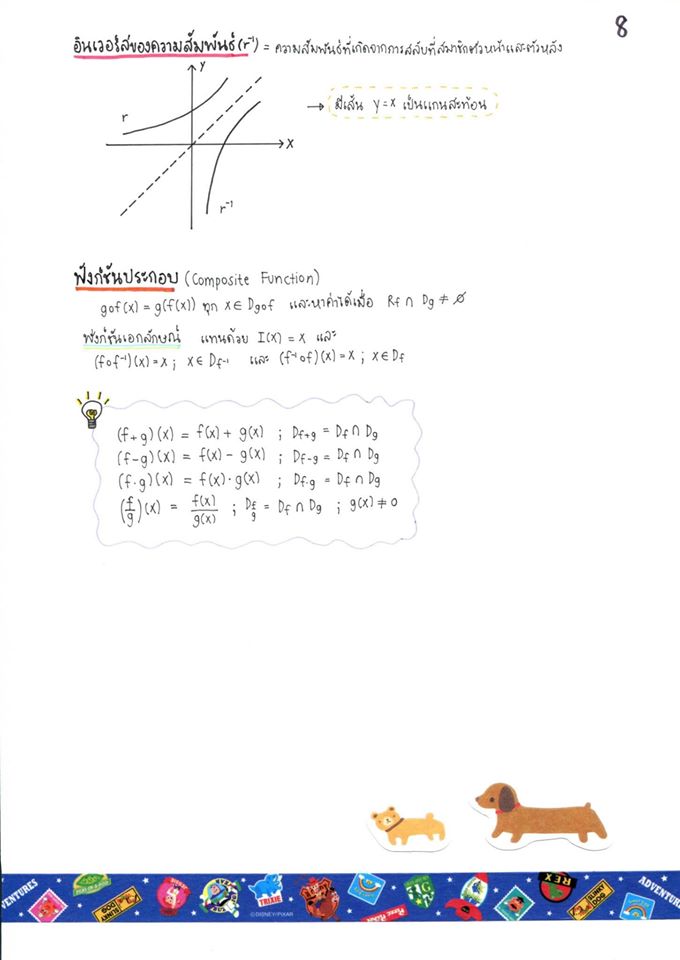 8
อินเวอร์สของความสัมพันธ์ (r⁻¹) = ความสัมพันธ์ที่เกิดจากการสลับที่สมาชิกตัวหน้าและตัวหลัง
Y
r
→ มีเส้น y = x เป็นแกนสะท้อน
X
r⁻¹
ฟังก์ชันประกอบ (Composite Function)
gof(x) = g(f(x)) ทุก x ∈ Dgof และหาค่าได้เมื่อ Rf ∩ Dg ≠ ∅
ฟังก์ชันเอกลักษณ์ แทนด้วย I(x) = x และ
(fof⁻¹)(x) = x ; x ∈ Df⁻¹ และ (f⁻¹of)(x) = x ; x ∈ Df
(f+g)(x) = f(x) + g(x) ; Df+g = Df ∩ Dg
(f-g)(x) = f(x) - g(x) ; Df-g = Df ∩ Dg
(f·g)(x) = f(x) · g(x) ; Df·g = Df ∩ Dg
(f/g)(x) = f(x)/g(x) ; Df/g = Df ∩ Dg ; g(x) ≠ 0
ADVENTURES
TRIXIE
©DISNEY/PIXAR
REX
ADVENT